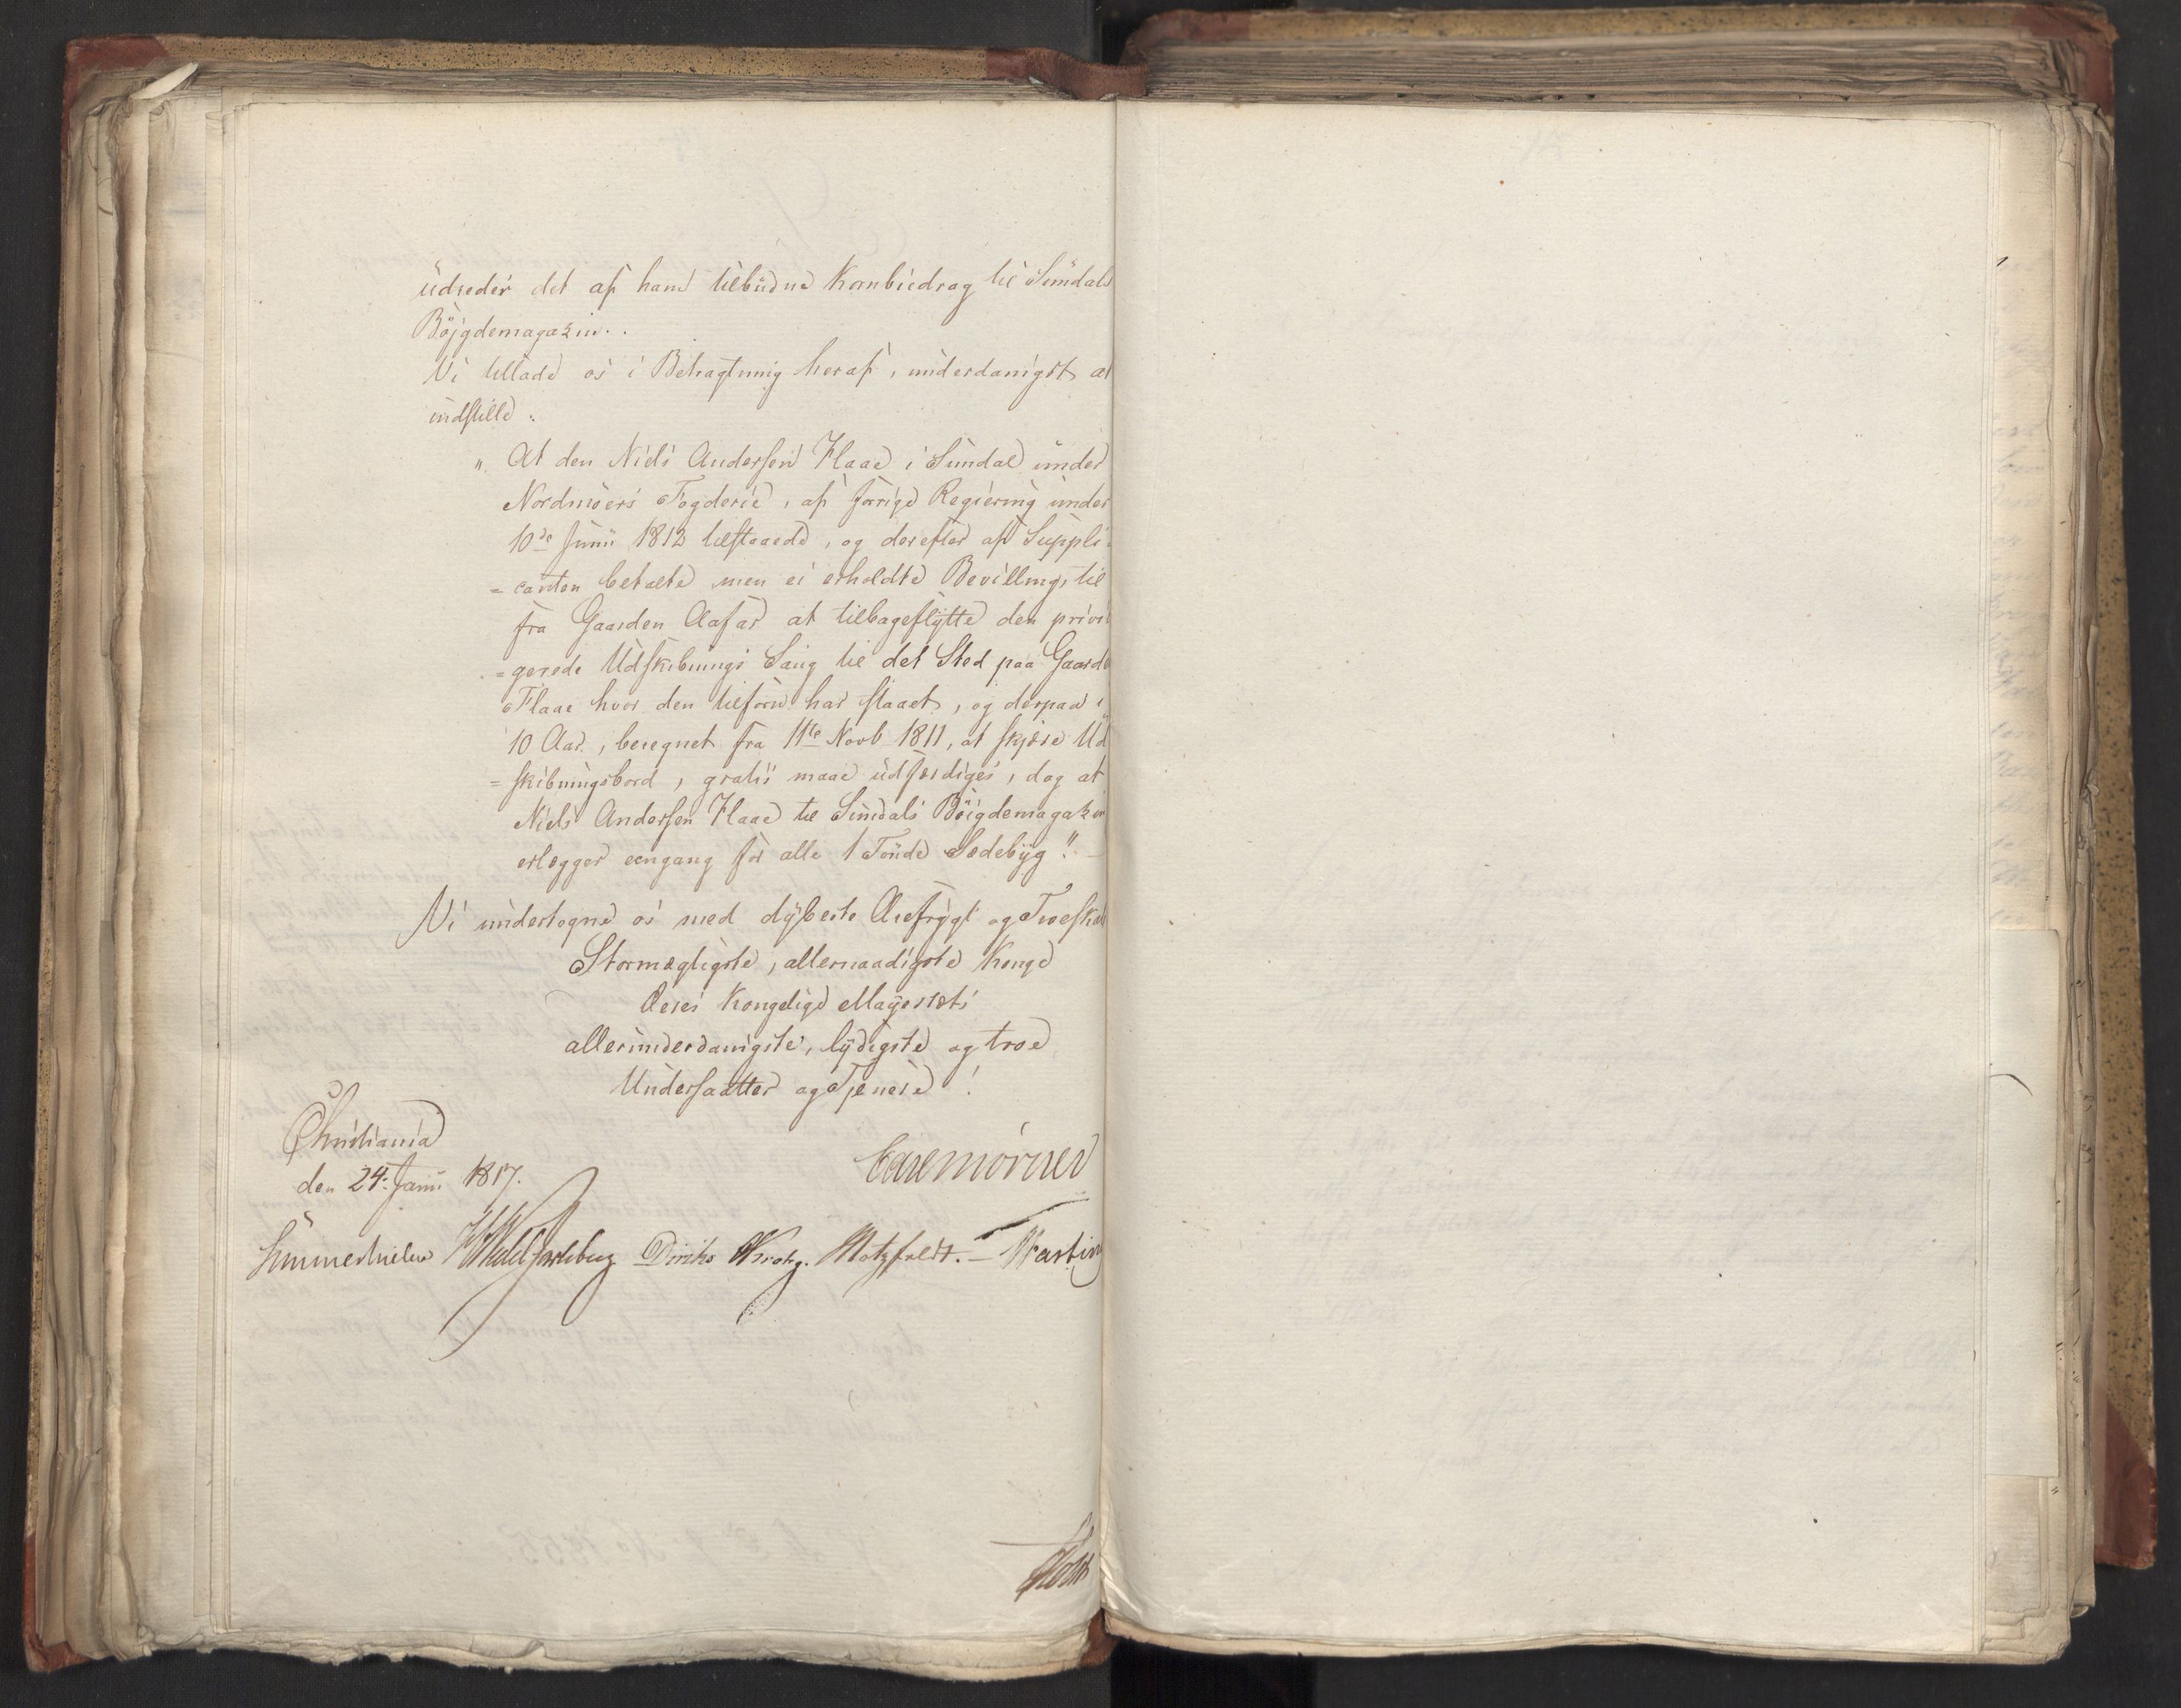 udreder det af ham tilbudne Kornbiedrag til Sundals
Böjgdemagazin.
Vi tillade os i Betragtning heraf, underdanigst at
indstille:
"At den Niels Andersen Flaae i Sundal under
Nordmöers Fogderie, af forrige Regiering under
10de Junii 1812 tilstaaede, og derefter af Suppli-
=canten betalte men ei erholdte Bevilling, til
fra Gaarden Aafar at tilbageflytte den privi
=gerede Udskibnings Saug til det Sted paa Gaarde
Flaae hvor den tilforn har staaet, og derpaa i
10 Aar, beregnet fra 11te Novb 1811, at skjære Ud
=skibningsbord, gratis maae udfærdiges, dog at
Niels Andersen Flaae til Sundals Böigdemagazin
erlægger eengang for alle 1 Tönde Sædebyg". -
Vi undertegne os med dybeste Ærefrygt og Troeskab
Stormægtigste, allernaadigste Konge
Deres Kongelige Mayestæts
allerunderdanigste, lydigste og troe
Undersaatter og Tjenere!
Christiania
den 24. Junii 1817.
Carl Mörner
Sommerhielm HWedel Jarlsberg Diriks Krohg. Motzfeldt. - Fasting
Holst